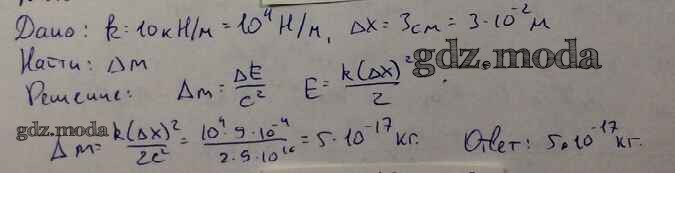 Дано: k = 10кН/м = 10⁴ Н/м, Δx = 3см = 3·10⁻² м
Найти: Δm
gdz.moda
Решение: Δm = ΔE/c² E = k(Δx)²/2
gdz.moda
Δm = k(Δx)²/2c² = 10⁴·9·10⁻⁴/2·9·10¹⁶ = 5·10⁻¹⁷ кг. Ответ: 5·10⁻¹⁷ кг.